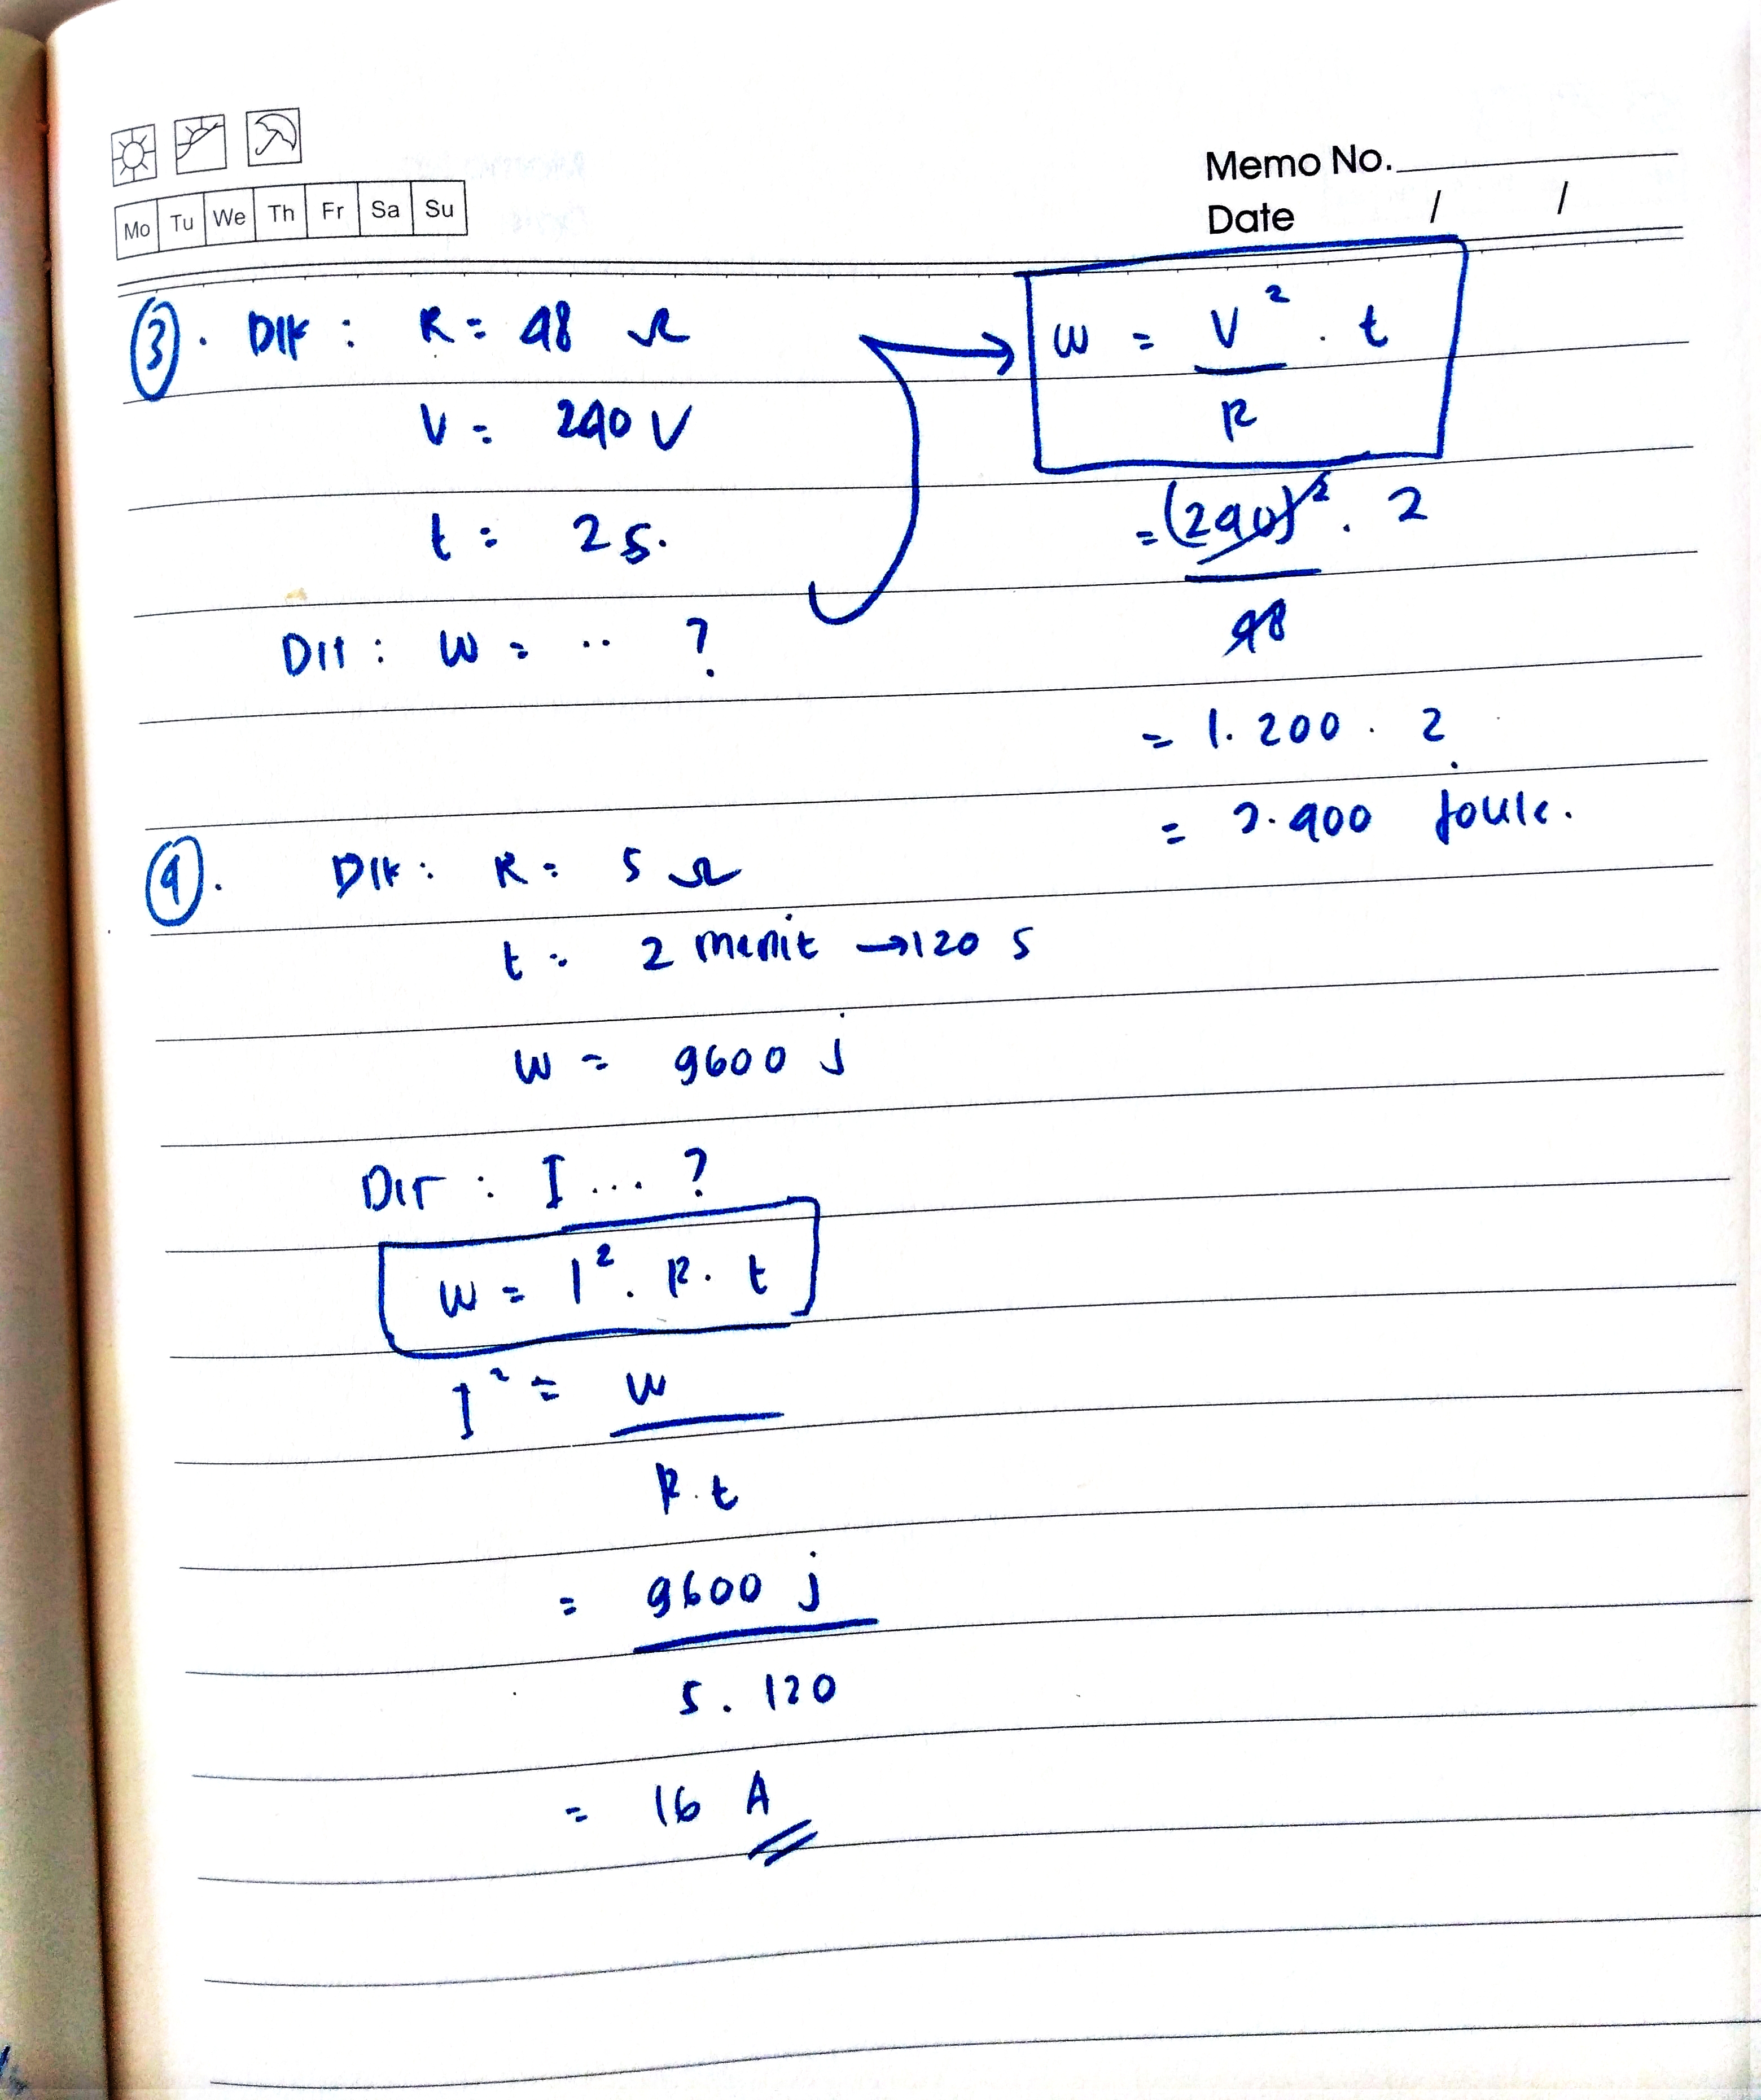 Mo Tu We Th Fr Sa Su
Memo No.
Date / /
3. Dik : R = 48 Ω
V = 240 V
t = 2 s.
Dit : W = .. ?
W = V² . t
R
= (240)² . 2
48
= 1.200 . 2
= 2.400 Joule.
4. Dik : R = 5 Ω
t = 2 menit → 120 s
W = 9600 j
Dit : I ... ?
W = I² . R . t
I² = W
R . t
= 9600 j
5 . 120
= 16 A